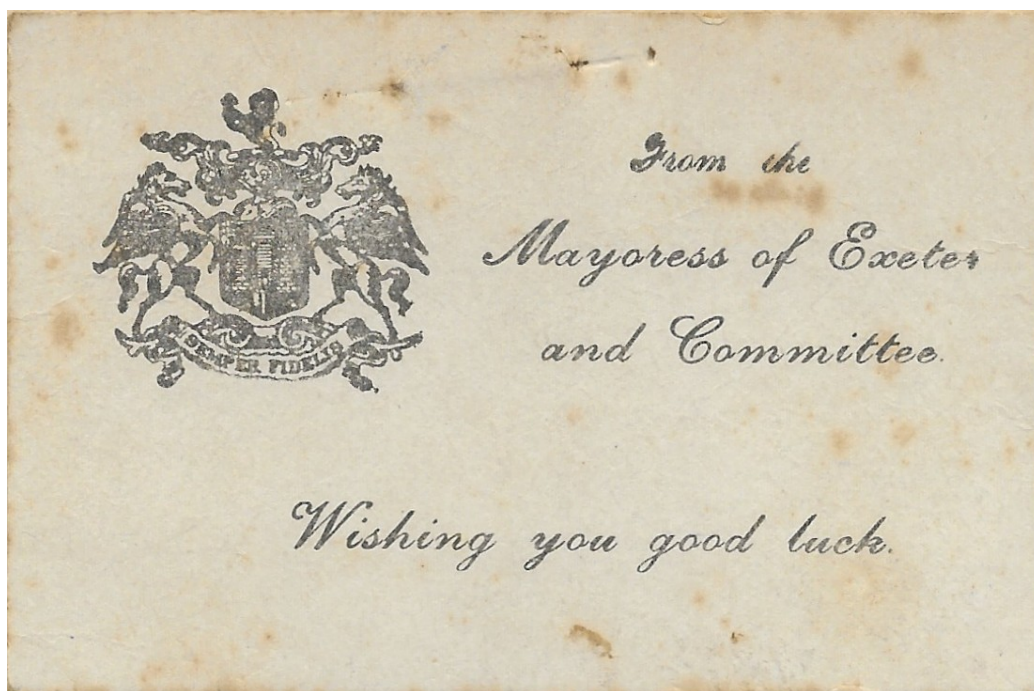 SEMPER FIDELIS
From the
Mayoress of Exeter
and Committee.
Wishing you good luck.